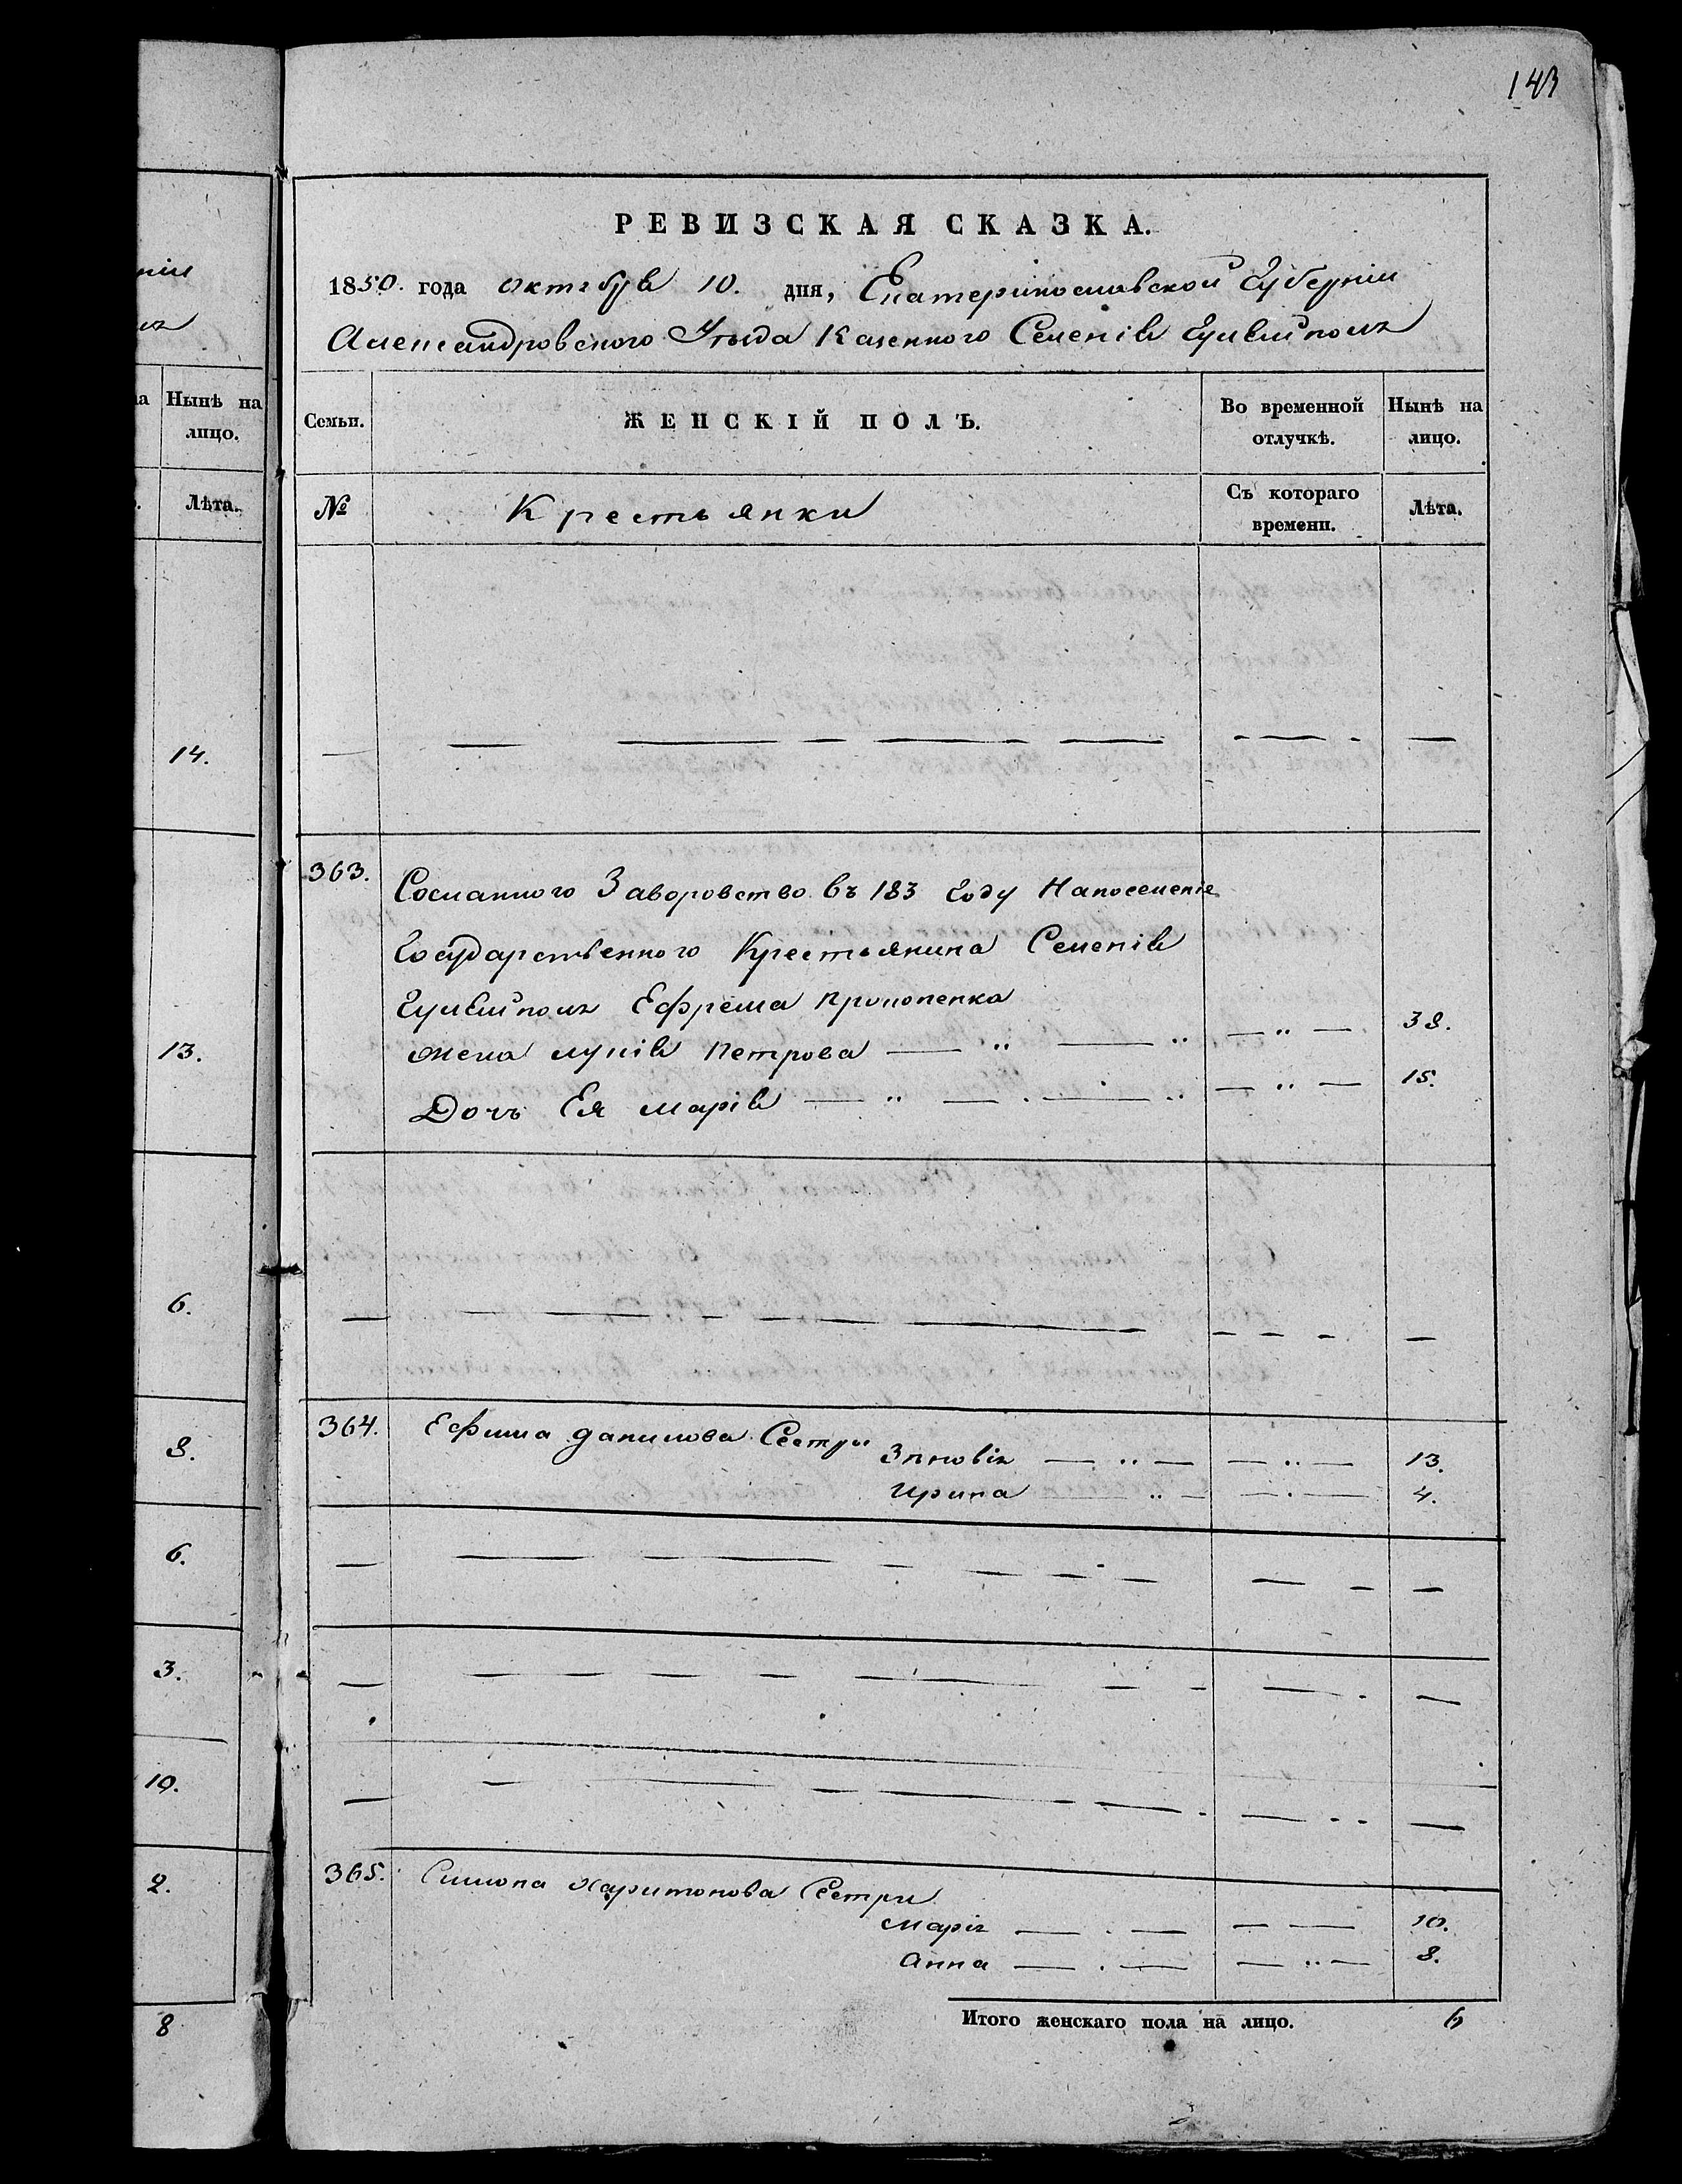 143
РЕВИЗСКАЯ СКАЗКА.
1850. года октября 10. дня, Екатеринославской Губерніи
Александровского Уѣзда Казенного Селенія Гуляйполя
Нынѣ на лицо.
Семьи. ЖЕНСКІЙ ПОЛЪ. Во временной отлучкѣ. Нынѣ на лицо.
Лѣта.
№ Крестьянки Съ котораго времени. Лѣта.
14.
363. Сосланного Заворовство въ 183 Году Напоселеніе
Государственного Крестьянина Селенія
Гуляйполя Ефрема Прокопенка
жена Лукія Петрова 38.
13.
Дочь Ея Марія 15.
6.
364. Ефима Данилова Сестры
Зѣновія 13.
8.
Ирина 4.
6.
3.
10.
365. Симона Харитонова Сестры
2.
Марія 10.
Анна 8.
Итого женскаго пола на лицо. 6
8